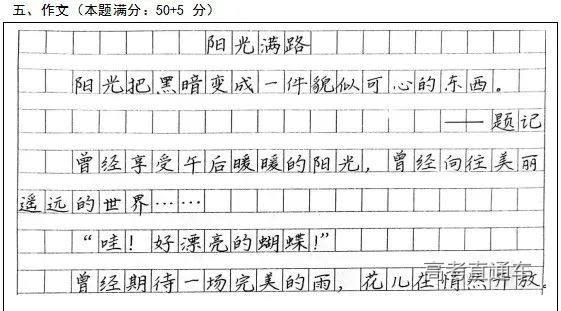 五、作文（本题满分：50+5 分）
阳光满路
阳光把黑暗变成一件貌似可心的东西。
——题记
曾经享受午后暖暖的阳光，曾经向往美丽
遥远的世界……
“哇！好漂亮的蝴蝶！”
曾经期待一场完美的雨，花儿在悄然开放。
高考直通车